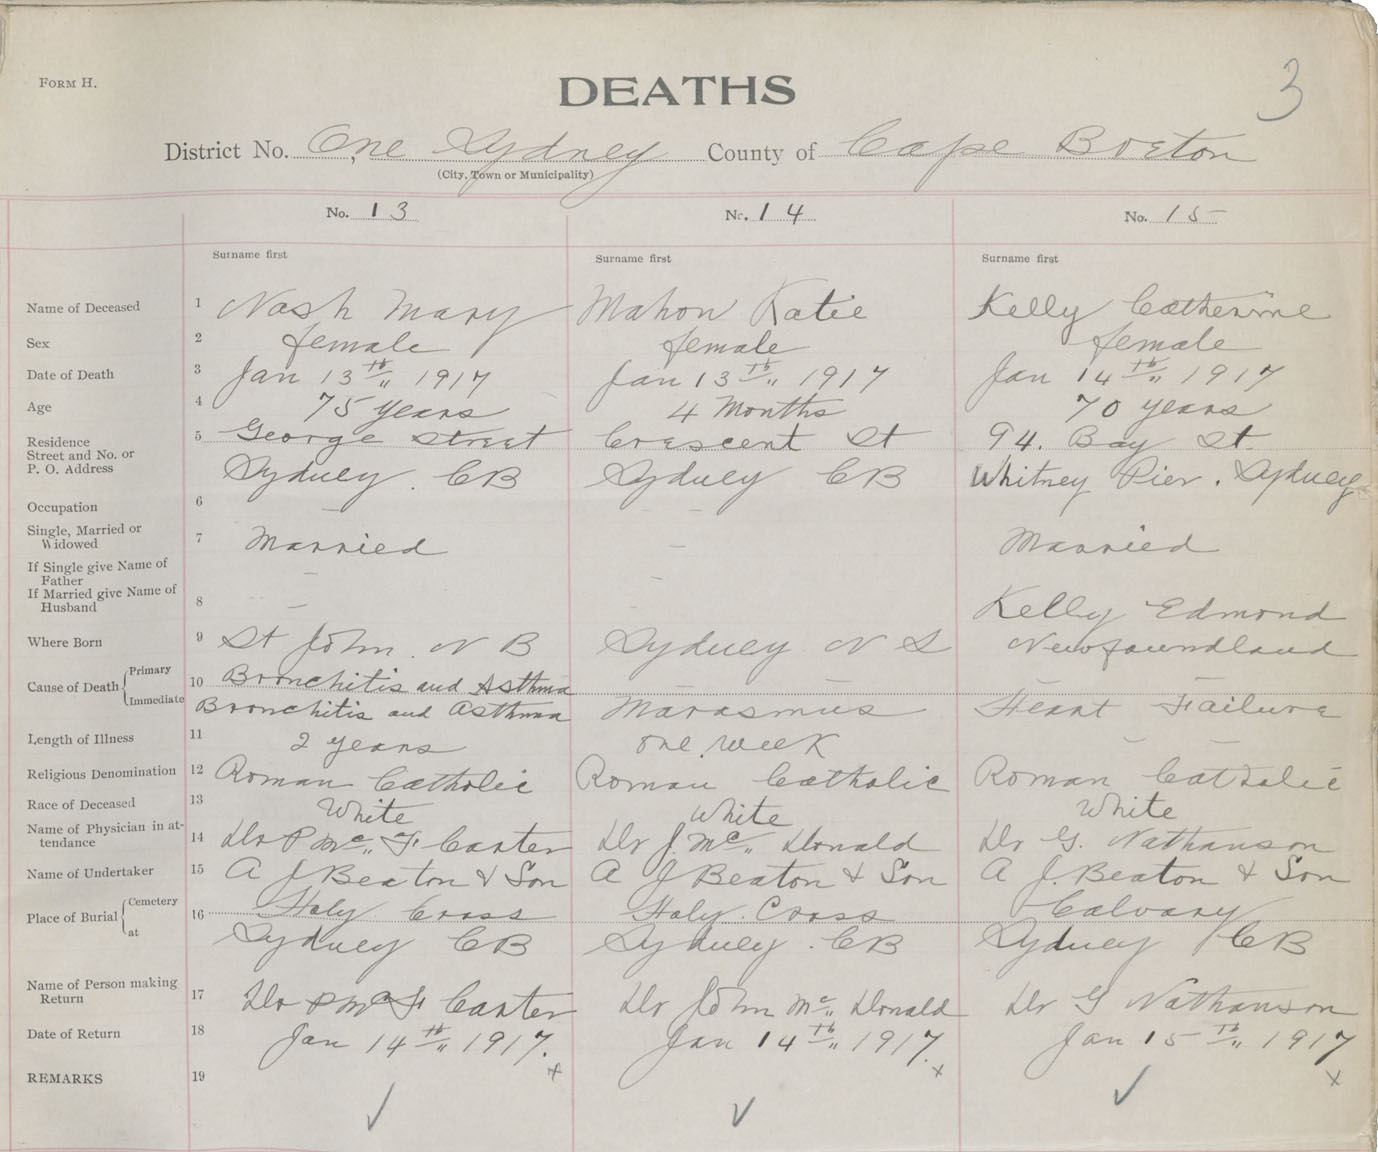 FORM H.
DEATHS
3
District No. One Sydney County of Cape Breton
(City, Town or Municipality)
No. 13 No. 14 No. 15
Surname first Surname first Surname first
Name of Deceased 1 Nash Mary Mahon Katie Kelly Catherine
Sex 2 female female female
Date of Death 3 Jan 13th 1917 Jan 13th 1917 Jan 14th 1917
Age 4 75 years 4 Months 70 years
Residence 5 George Street Crescent St 94. Bay St.
Street and No. or
P. O. Address Sydney. CB Sydney CB Whitney Pier. Sydney
Occupation 6 – –
Single, Married or
Widowed 7 Married – Married
If Single give Name of
Father – –
If Married give Name of
Husband 8 – Kelly Edmond
Where Born 9 St John. N B Sydney N S Newfoundland
Cause of Death Primary 10 Bronchitis and Asthma – – – –
Immediate Bronchitis and Asthma Marasmus Heart Failure
Length of Illness 11 2 years one week – –
Religious Denomination 12 Roman Catholic Roman Catholic Roman Catholic
Race of Deceased 13 White White White
Name of Physician in at-
tendance 14 Dr P Mc F Carter Dr J. Mc Donald Dr G. Nathanson
Name of Undertaker 15 A J Beaton & Son A J Beaton & Son A J. Beaton & Son
Place of Burial Cemetery 16 Holy Cross Holy Cross Calvary
at Sydney CB Sydney. CB Sydney CB
Name of Person making
Return 17 Dr P Mc F Carter Dr John Mc Donald Dr G Nathanson
Date of Return 18 Jan 14th 1917. Jan 14th 1917. Jan 15th 1917
REMARKS 19 x x x
✓ ✓ ✓